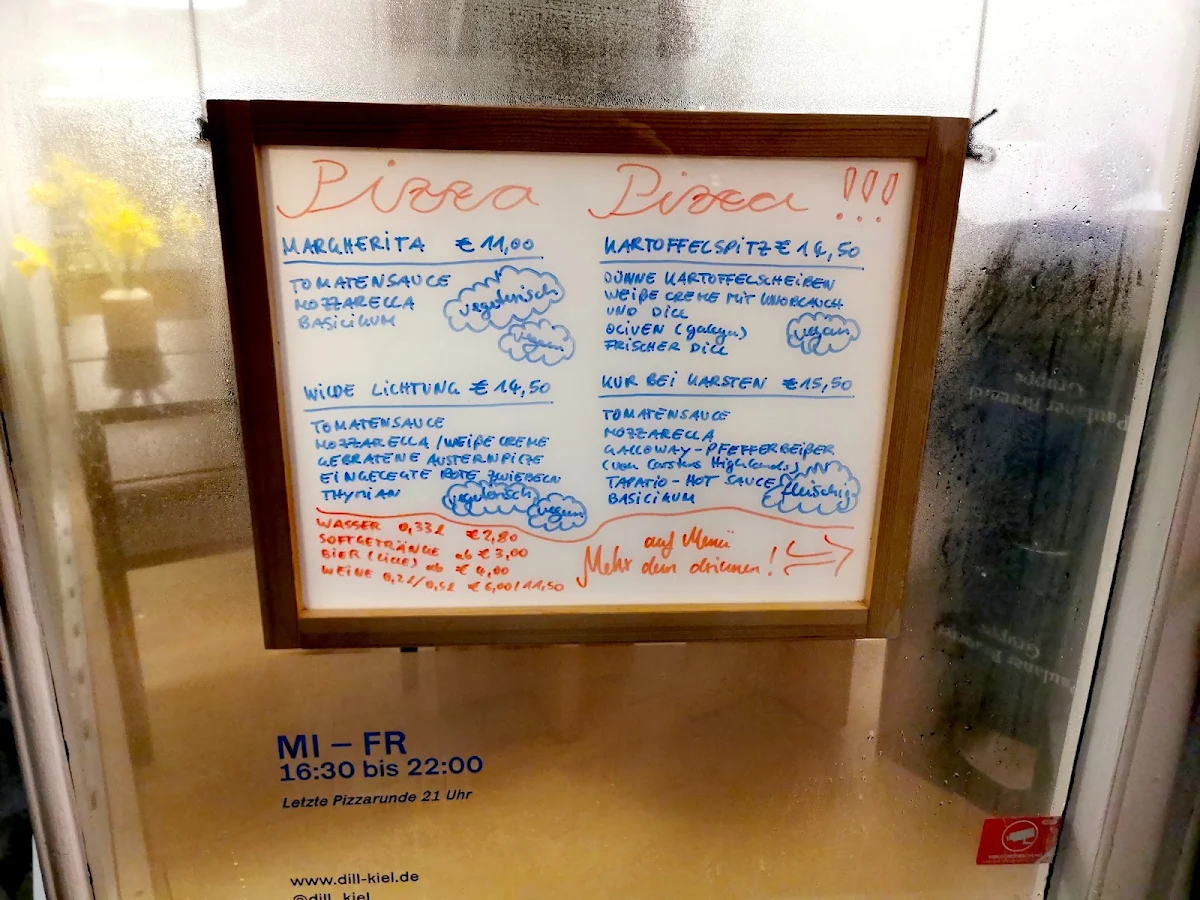 Pizza Pizza !!!
MARGHERITA € 11,00
TOMATENSAUCE
MOZZARELLA
BASILIKUM
vegetarisch
vegan
WILDE LICHTUNG € 14,50
TOMATENSAUCE
MOZZARELLA / WEIßE CREME
GEBRATENE AUSTERNPILZE
EINGELEGTE ROTE ZWIEBELN
THYMIAN
vegetarisch
vegan
KARTOFFELSPITZ € 14,50
DÜNNE KARTOFFELSCHEIBEN
WEIßE CREME MIT KNOBLAUCH
UND DILL
OLIVEN (galega)
FRISCHER DILL
vegan
KUR BEI KARSTEN €15,50
TOMATENSAUCE
MOZZARELLA
GALLOWAY-PFEFFERBEIßER
(von Carstens Highlands)
TAPATIO-HOT SAUCE
BASILIKUM
fleischig
WASSER 0,33l €2,80
SOFTGETRÄNKE ab € 3,00
BIER (Lille) ab € 4,00
WEINE 0,2l/0,5l € 6,00/11,50
auf Menü
Mehr dem drinnen!
MI – FR
16:30 bis 22:00
Letzte Pizzarunde 21 Uhr
www.dill-kiel.de
@dill_kiel
Paulaner Brauerei
Gruppe
Gruppe